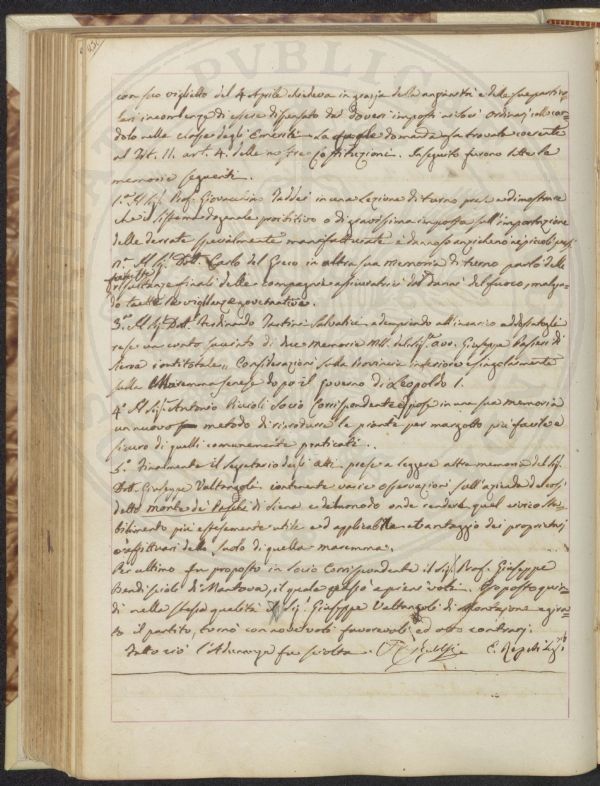 con suo viglietto del 4 Aprile chiedeva in grazia della sua età e delle sue partico
lari incombenze di essere dispensato dai doveri imposti ai Soci Ordinarj collocan
dolo nella classe degli Emeriti. La quale domanda fu trovata coerente
al Tit. II. art. 4. delle nostre Costituzioni. In seguito furono lette le
memorie seguenti.
1.a Il Sig. Prof. Giovacchino Taddei in una Lezione di turno prese a dimostrare
che il sistema doganale proibitivo o di gravissima imposta sull'importazione
delle derrate specialmente manifatturate è dannoso anzichenò ai piccoli
2.a Il Sig. Dott. Carlo del Greco in altra sua memoria di turno parlò delle
resultanze finali delle compagnie assicuratrici dai danni del fuoco, malgra
do tutte le vigilanze governative.
3.o Il Sig. Dott. Ferdinando Tartini Salvatici adempiendo all'incarico addossatogli
rese un conto succinto di due memorie MSS. del Sig. avv. Giuseppe di
Siena intitolate,, Considerazioni sulla Provincia inferiore e singolarmente
sulla Maremma senese dopo il governo di Leopoldo I.
4.o Il Sig. Antonio Piccioli Socio Corrispondente espose in una sua memoria
un nuovo metodo di riprodurre le piante per margotto più facile e
sicuro di quelli comunemente praticati.
5.o Finalmente il Segretario degli atti prese a leggere altra memoria del Sig.
Dott. Giuseppe Valtancoli contenente varie osservazioni sull'azienda del così
detto monte de' Paschi di Siena e del modo onde rendere quel civico Sta-
bilimento più estesamente utile ed applicabile a vantaggio dei proprietarj
o affittuari del suolo di quella maremma.
Per ultimo fu proposto in socio Corrispondente il Sig. Prof. Giuseppe
Bendiscioli di Mantova, il quale passò a pieni voti. Proposto quin
di nella stessa qualità il Sig. Giuseppe Valtancoli di Montazione e gira-
to il partito, tornò con nove voti favorevoli ed otto contrarj.
Dopo ciò l'Adunanza fu sciolta. C. Ridolfi E. Repetti